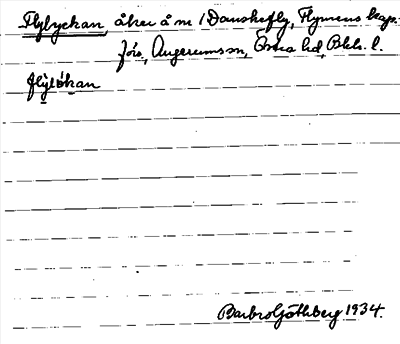 Flylyckan, åker å n:o 1 Danskefly, Flymens kap-
förs., Augerums sn, Östra hd, Blek. l.
flýløkan
Barbro Göthberg 1934.